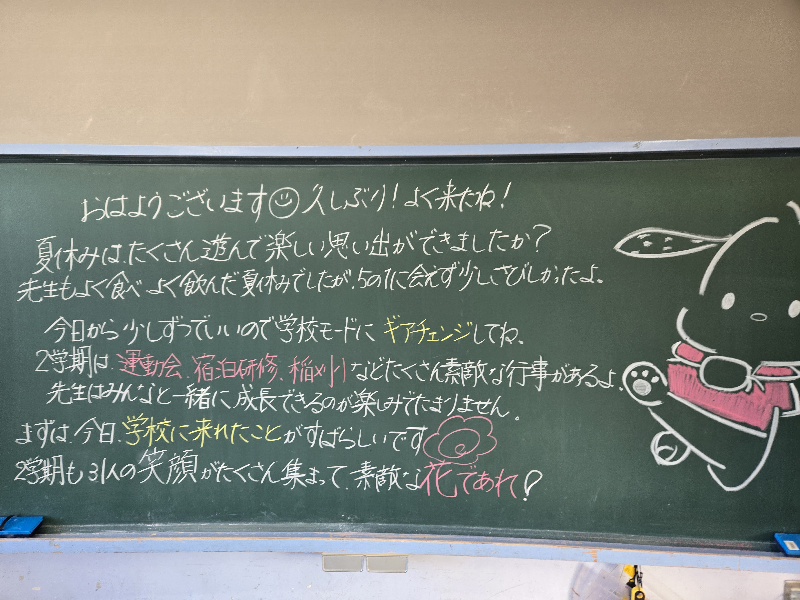 おはようございます 久しぶり!よく来たね!
夏休みは、たくさん遊んで楽しい思い出ができましたか?
先生もよく食べ よく飲んだ夏休みでしたが、5の1に会えず少しさびしかったよ。
今日から少しずつでいいので学校モードに ギアチェンジしてね。
2学期は、運動会、宿泊研修、稲刈りなどたくさん素敵な行事があるよ。
先生はみんなと一緒に成長できるのが楽しみでたまりません。
まずは、今日、学校に来れたことがすばらしいです
2学期も31人の笑顔がたくさん集まって、素敵な花であれ!